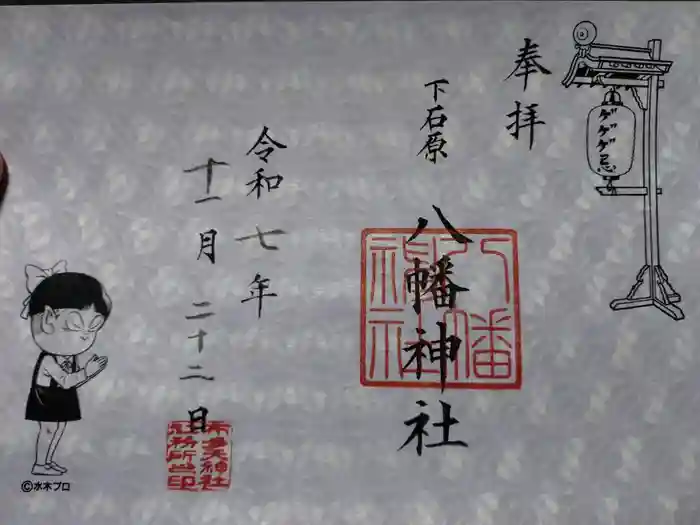 ゲゲゲ忌
奉拝
下石原
八幡神社
八幡神社
令和七年
十一月二十二日
布多天神社
社務所之印
©水木プロ